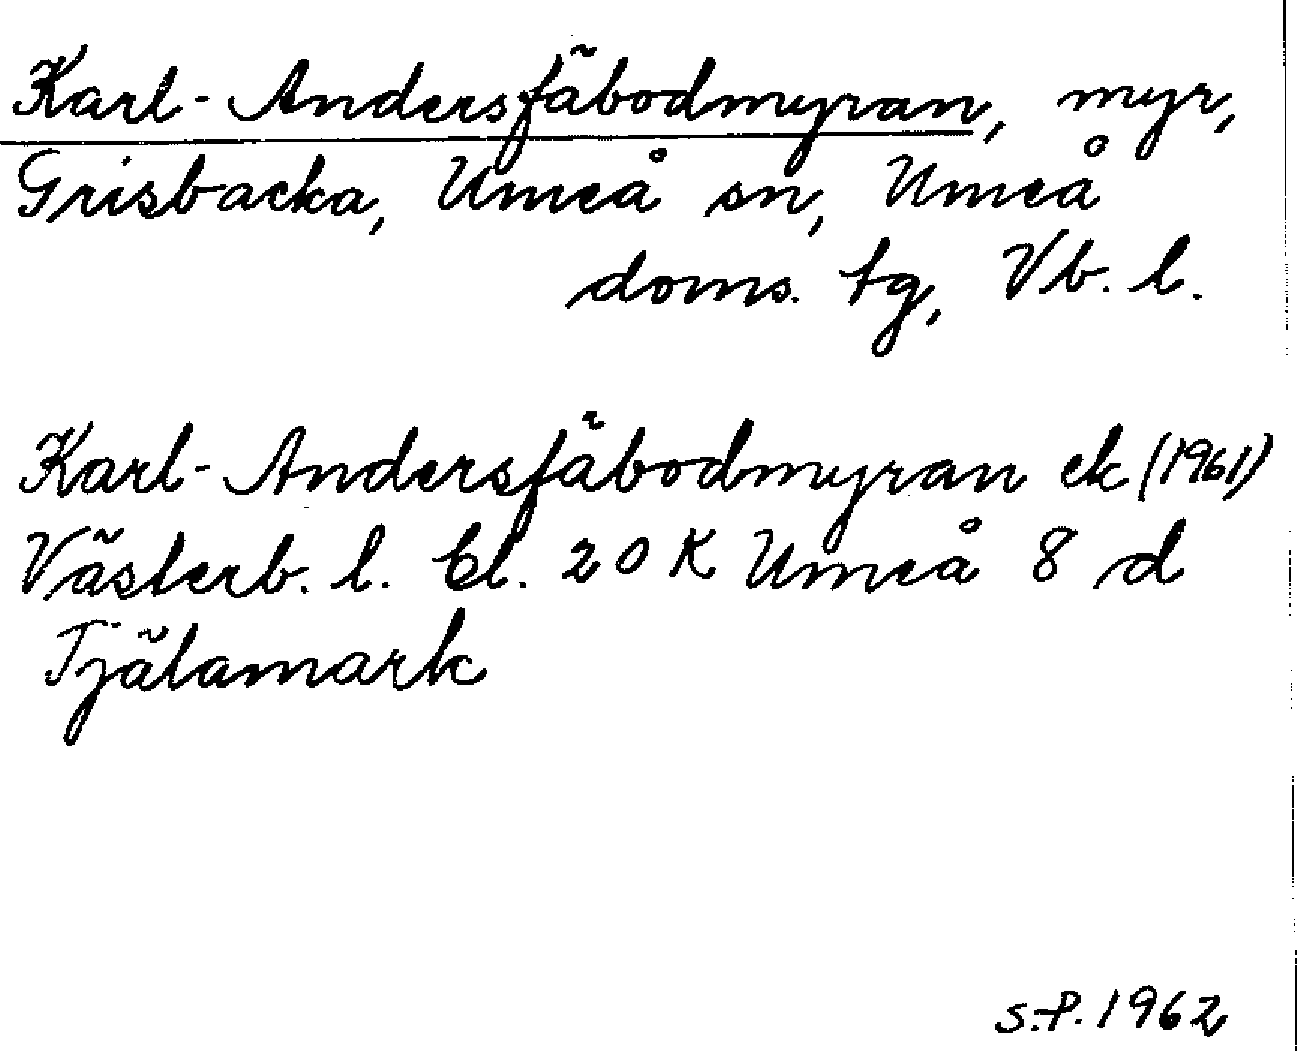 Karl-Andersfäbodmyran, myr,
Grisbacka, Umeå sn, Umeå
doms. tg, Vb. l.
Karl-Andersfäbodmyran ek (1961)
Västerb. l. bl. 20 K Umeå 8 d
Tjälamark
S.-P. 1962